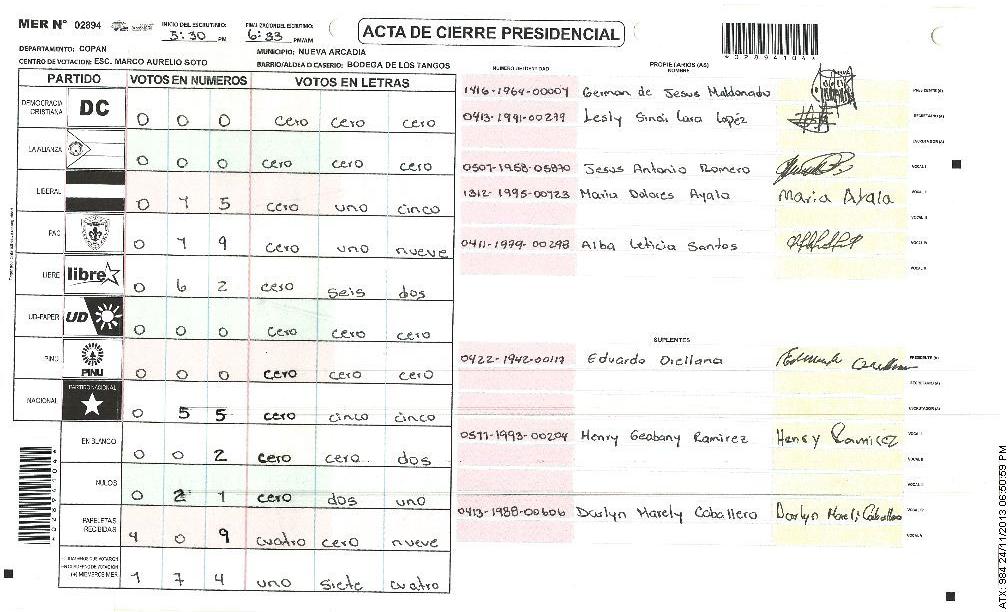 MER N° 02894
INICIO DEL ESCRUTINIO:
5:30 PM
FINALIZACION DEL ESCRUTINIO:
6:33 PM/AM
ACTA DE CIERRE PRESIDENCIAL
*02894104*
DEPARTAMENTO: COPAN
MUNICIPIO: NUEVA ARCADIA
CENTRO DE VOTACION: ESC. MARCO AURELIO SOTO
BARRIO/ALDEA O CASERIO: BODEGA DE LOS TANGOS
PARTIDO VOTOS EN NUMEROS VOTOS EN LETRAS
DEMOCRACIA CRISTIANA DC 0 0 0 cero cero cero
LA ALIANZA 0 0 0 cero cero cero
LIBERAL 0 1 5 cero uno cinco
PAC 0 1 9 cero uno nueve
LIBRE libre 0 6 2 cero seis dos
UD-FAPER UD 0 0 0 cero cero cero
PINU PINU 0 0 0 cero cero cero
NACIONAL PARTIDO NACIONAL 0 5 5 cero cinco cinco
EN BLANCO 0 0 2 cero cero dos
NULOS 0 2 1 cero dos uno
PAPELETAS RECIBIDAS 4 0 9 cuatro cero nueve
1 7 4 uno siete cuatro
NUMERO DE IDENTIDAD
PROPIETARIOS (AS)
NOMBRE
1416-1964-00007 German de Jesus Maldonado PRESIDENTE(A)
0413-1991-00299 Lesly Sinai Lara Lopéz SECRETARIO(A)
ESCRUTADOR(A)
0507-1958-05890 Jesus Antonio Romero VOCAL I
1312-1995-00723 Maria Dolores Ayala Maria Ayala VOCAL II
VOCAL III
0411-1979-00298 Alba Leticia Santos VOCAL IV
VOCAL V
SUPLENTES
0422-1942-00117 Eduardo Orellana PRESIDENTE(A)
SECRETARIO(A)
ESCRUTADOR(A)
0511-1993-00204 Henry Geobany Ramirez Henry Ramirez VOCAL I
VOCAL II
VOCAL III
0413-1988-00606 Darlyn Marely Caballero Darlyn Mareli Caballero VOCAL IV
VOCAL V
*02894104*
ATX: 984 24/11/2013 06:50:59 PM